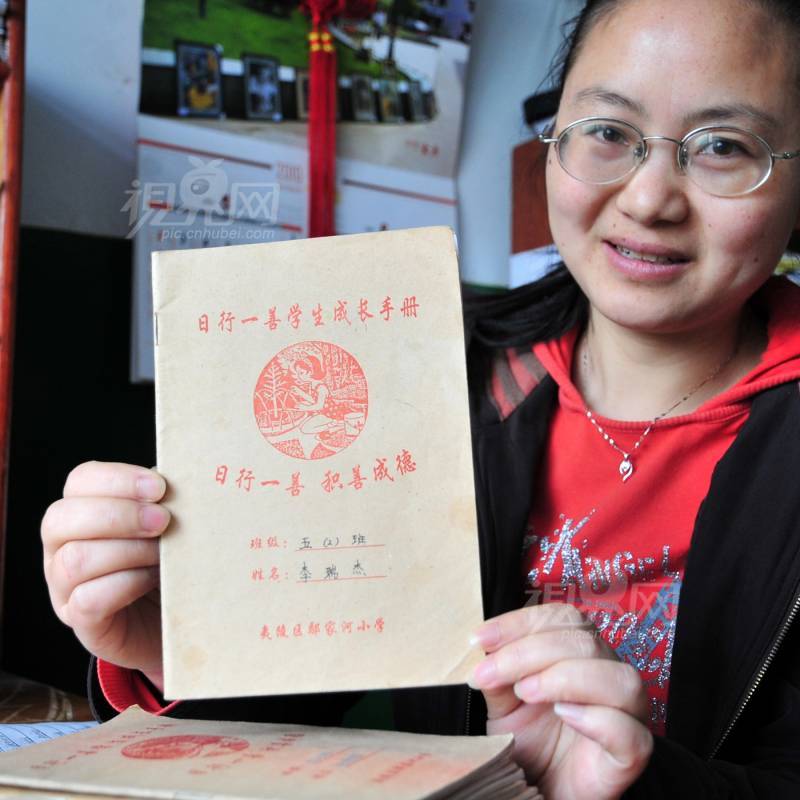 视界网
pic.cnhubei.com
日行一善学生成长手册
日行一善 积善成德
班级：五（2）班
姓名：李瑞杰
夷陵区鄢家河小学
ANGEL
视界网
pic.cnhubei.com